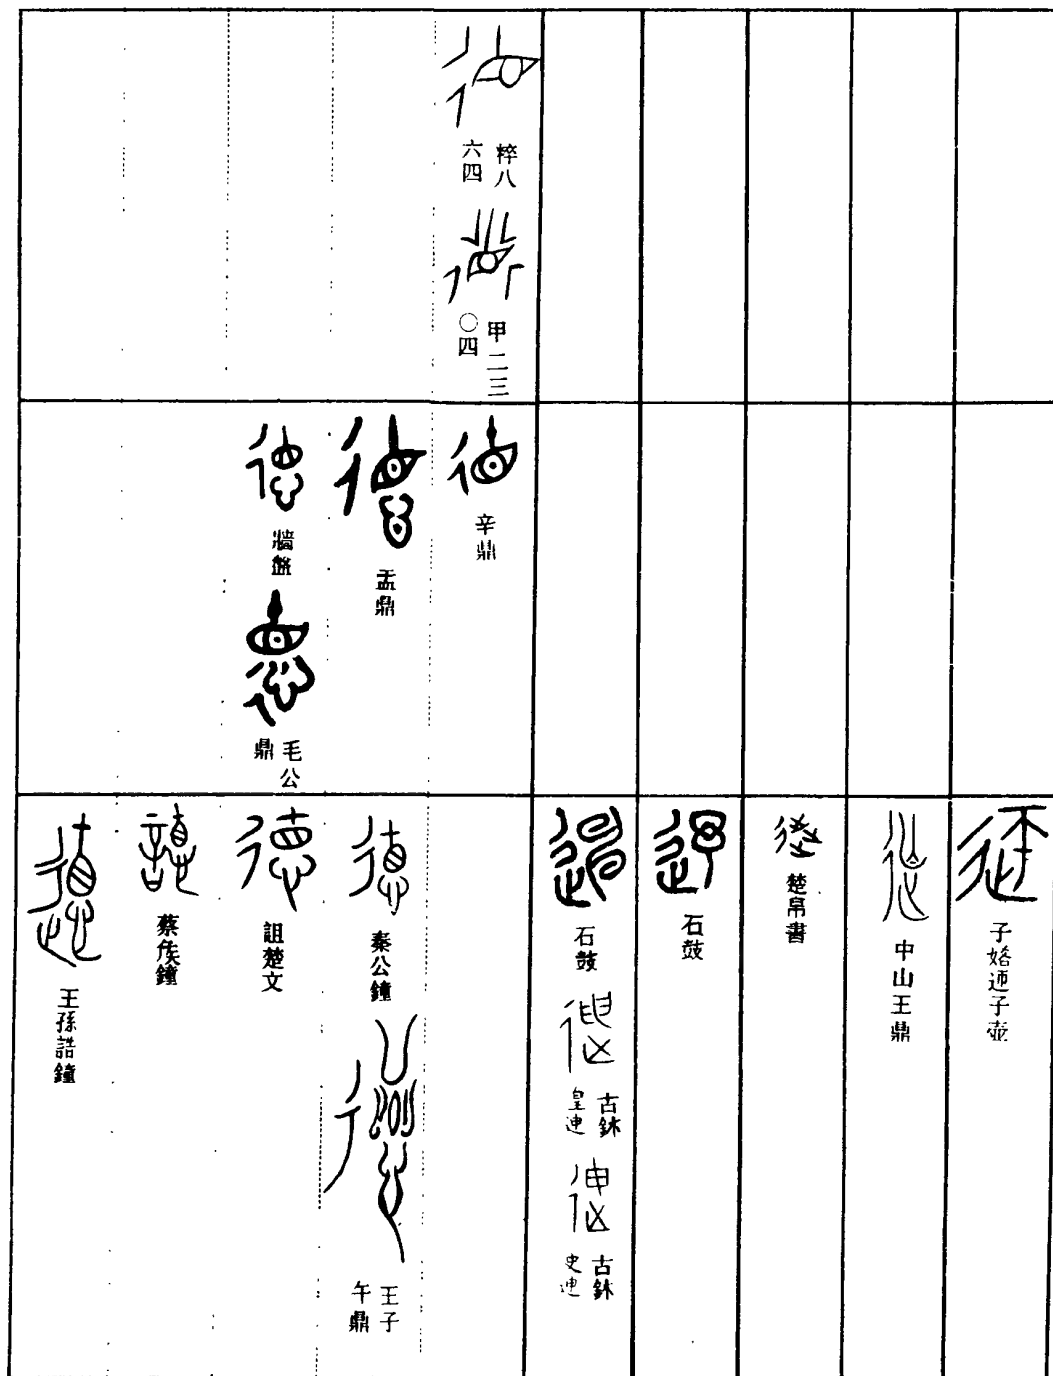 粹八
六四
甲二三
〇四
辛鼎
盂鼎
牆盤
毛公
鼎
子㛼迊子壺
中山王鼎
楚帛書
石鼓
石鼓
古鉥
皇迧
古鉥
史迧
秦公鐘
王子
午鼎
詛楚文
蔡侯鐘
王孫誥鐘